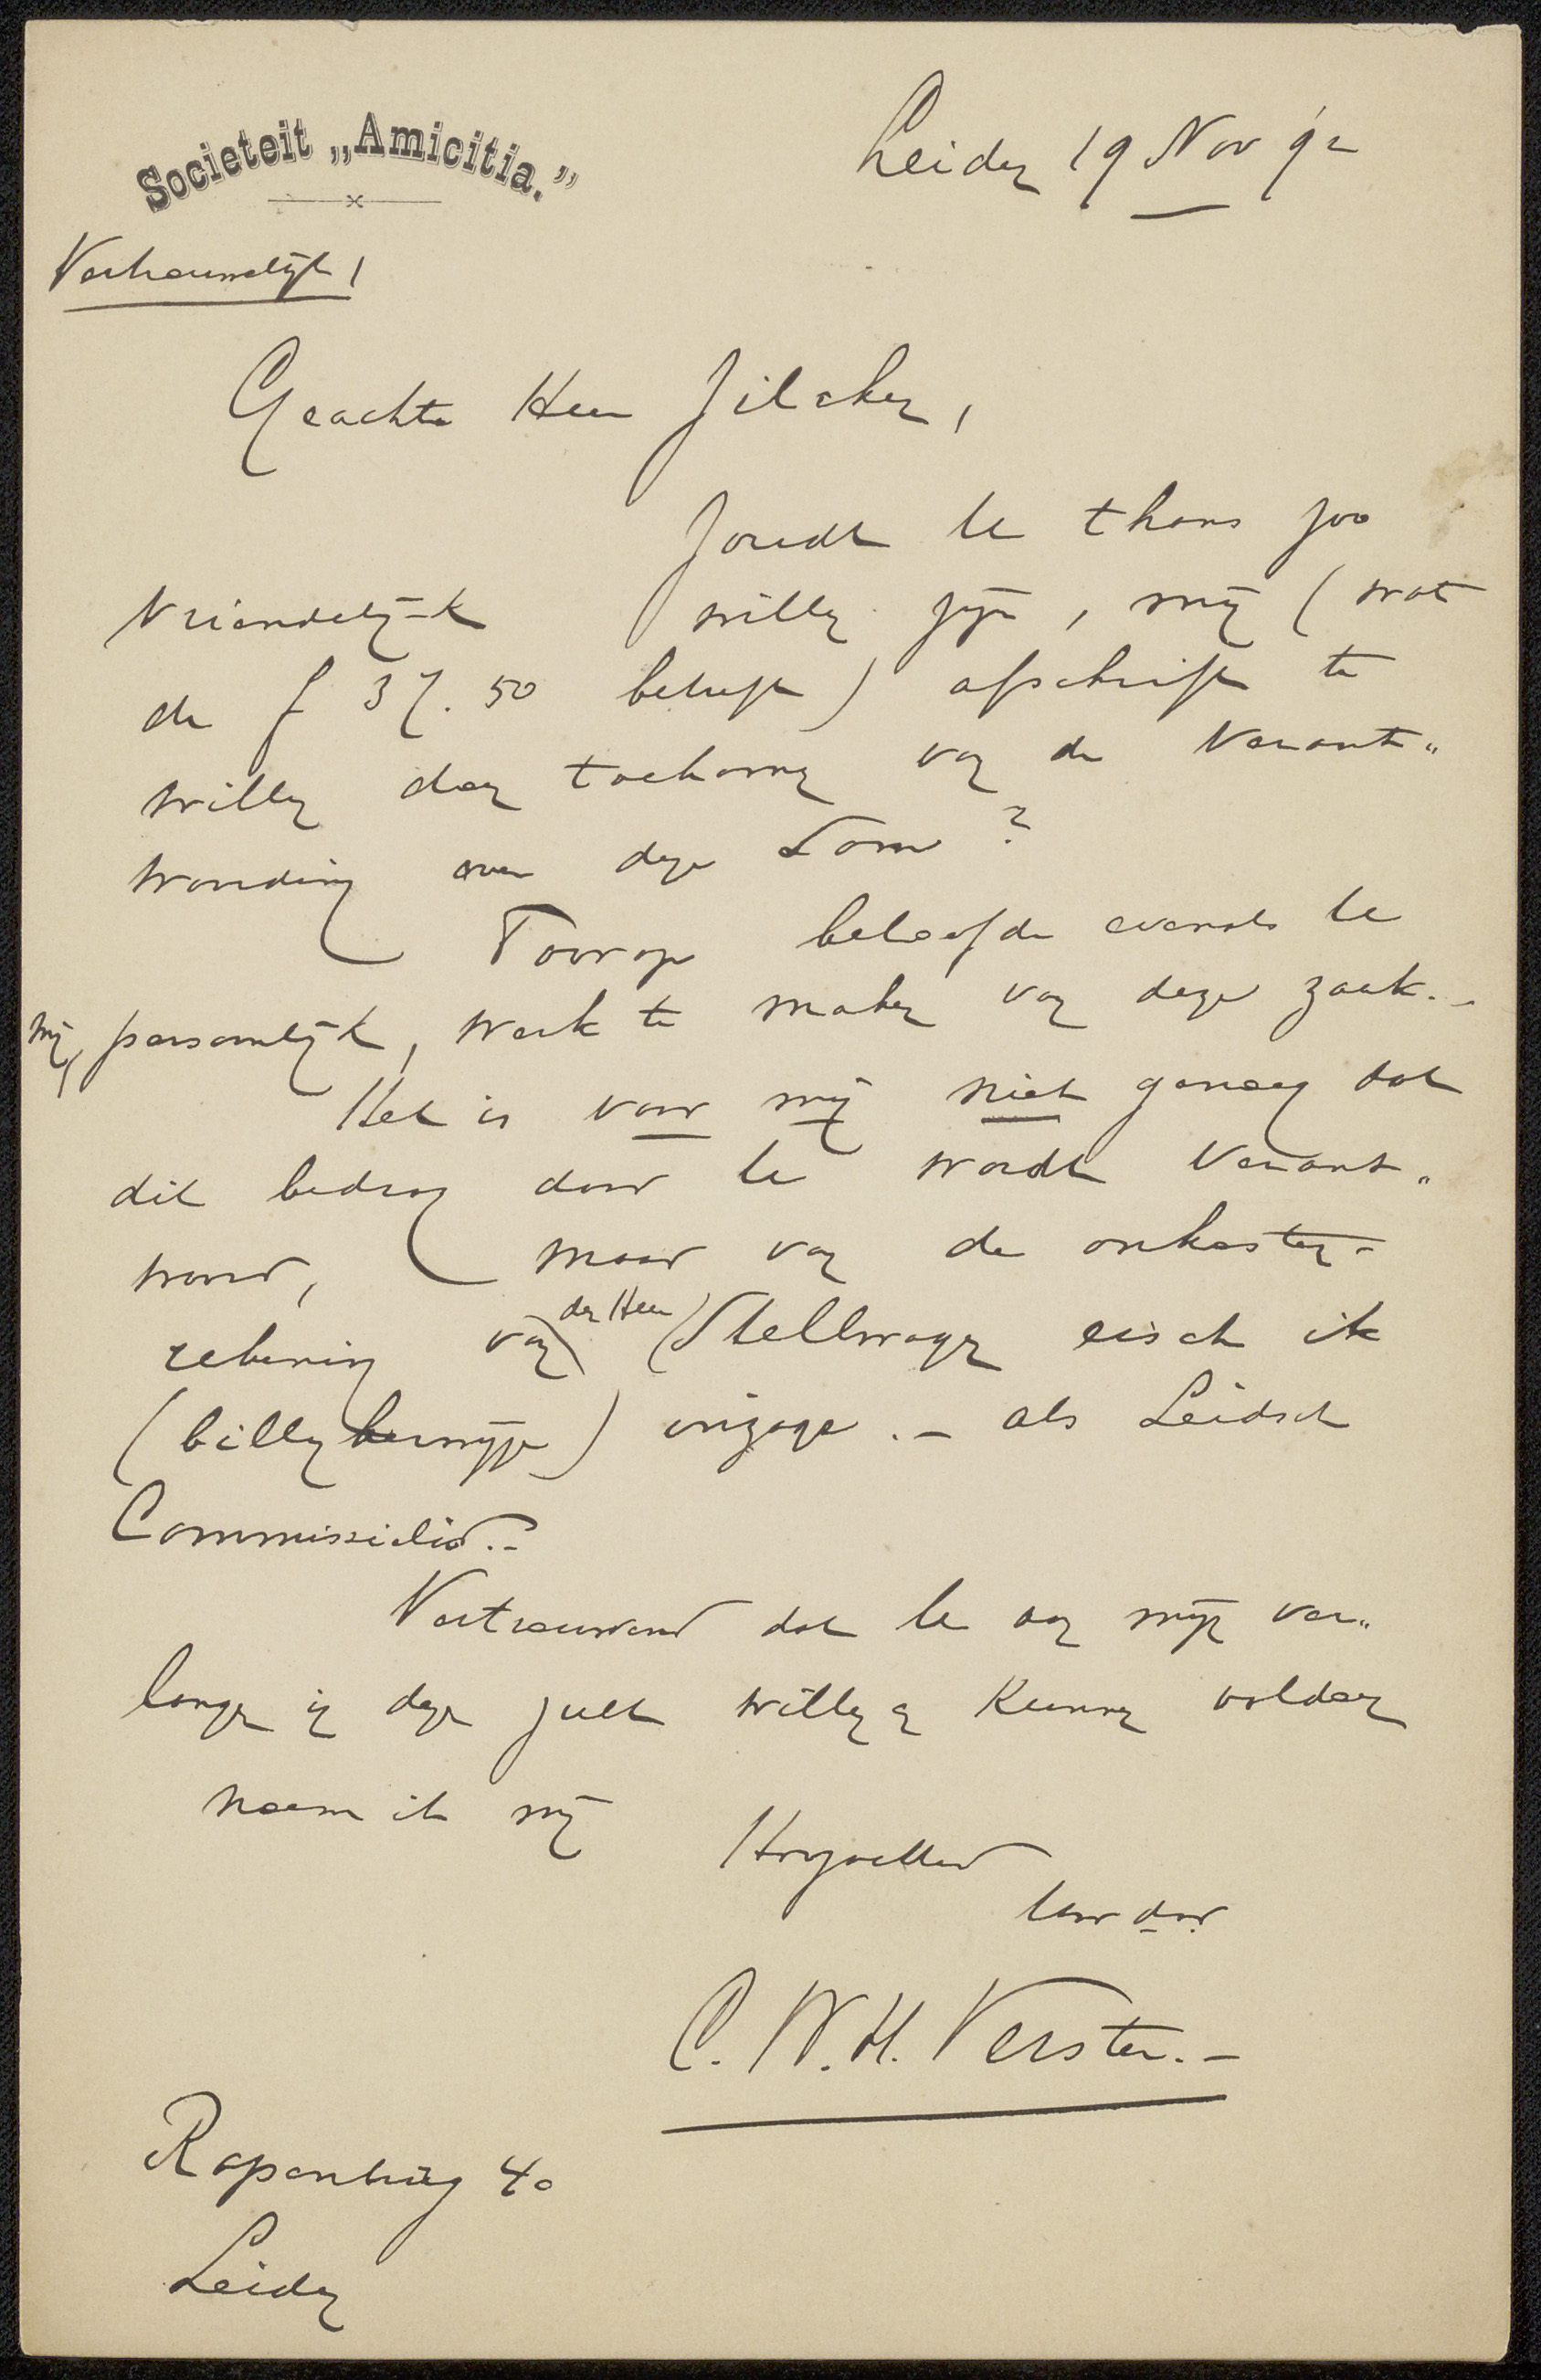 Societeit „Amicitia.”
Leiden 19 Nov 92
Vertrouwelijk!
Geachte Heer Zilcken,
Zoudt Ue thans zoo
vriendelijk willen zijn, mij (wat
de f 37.50 betreft) afschrift te
willen doen toekomen van de verant„
woording over deze Som?
Toorop beloofde evenals Ue
mij, persoonlijk, werk te maken van deze zaak.-
Het is voor mij niet genoeg dat
dit bedrag door Ue wordt verant„
woord, maar van de onkosten-
rekening van den Heer Stellwagen eisch ik
(billijkerwijze) inzage.- als Leidsch
Commissielid.-
Vertrouwend dat Ue aan mijn ver„
langen in deze zult willen en kunnen voldoen
noem ik mij Hoogachtend
Uw dw.
C. W. H. Verster.-
Rapenburg 40
Leiden